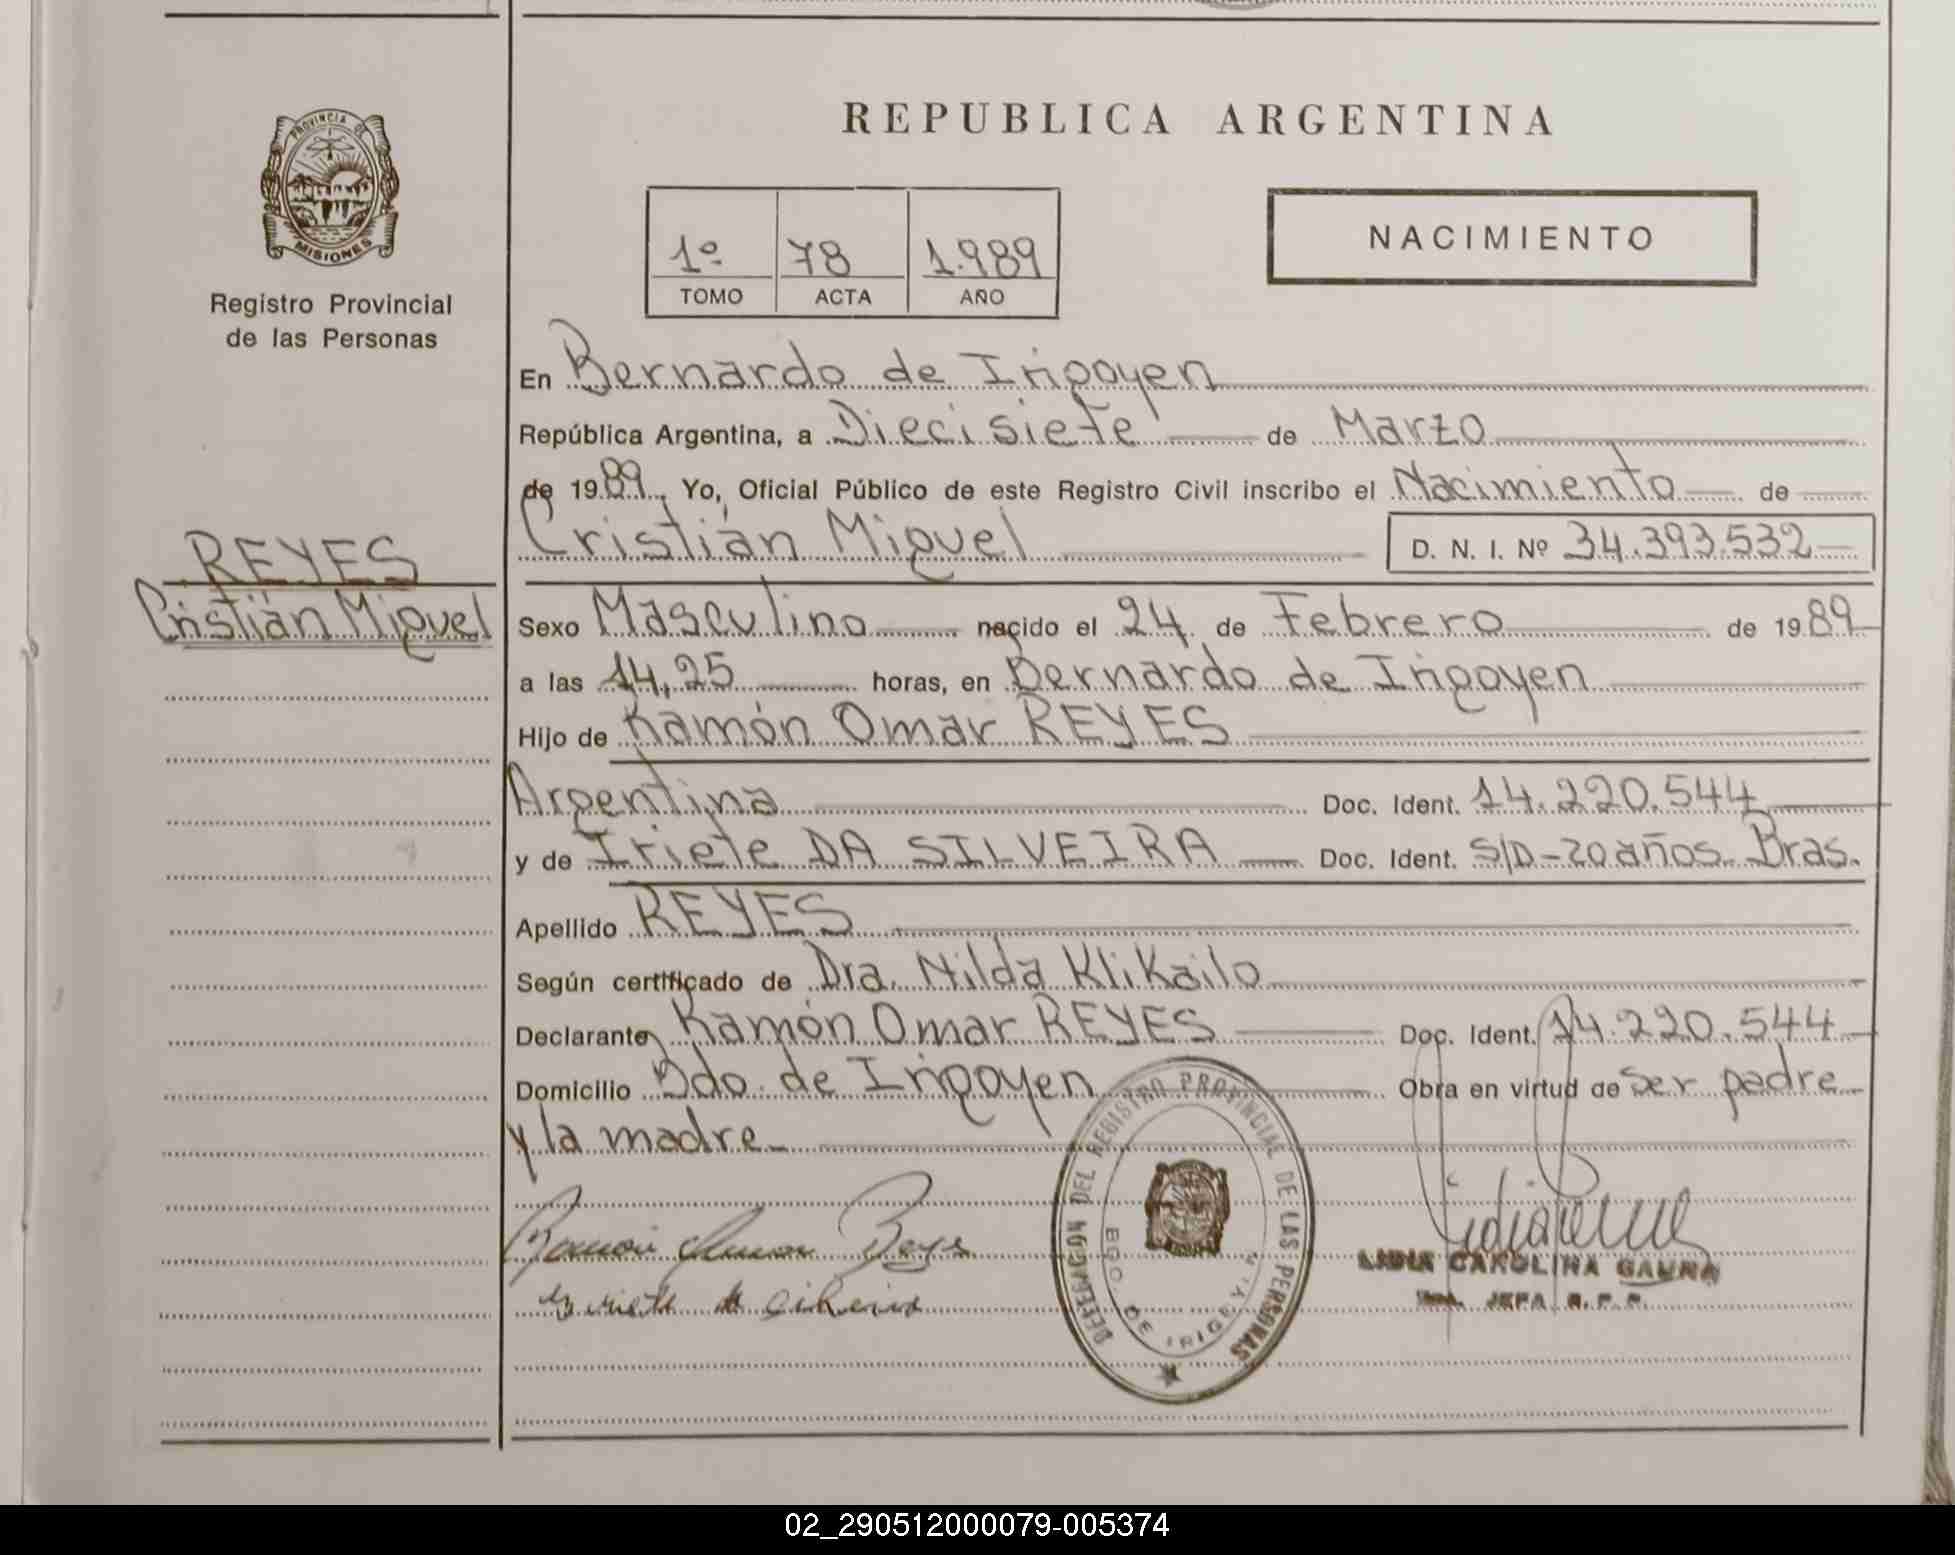 PROVINCIA DE
MISIONES
Registro Provincial
de las Personas
REYES
Cristián Miguel
REPUBLICA ARGENTINA
1º 78 1.989
TOMO ACTA AÑO
NACIMIENTO
En Bernardo de Irigoyen
República Argentina, a Diecisiete de Marzo
de 1989, Yo, Oficial Público de este Registro Civil inscribo el Nacimiento de
Cristián Miguel D. N. I. Nº 34.393.532
Sexo Masculino nacido el 24 de Febrero de 1989
a las 14,25 horas, en Bernardo de Irigoyen
Hijo de Ramón Omar REYES
Argentina Doc. Ident. 14.220.544
y de Iriete DA SILVEIRA Doc. Ident. S/D-20 años Bras.
Apellido REYES
Según certificado de Dra. Nilda Klikailo
Declarante Ramón Omar REYES Doc. Ident. 14.220.544
Domicilio Bdo. de Irigoyen Obra en virtud de ser padre
y la madre
DELEGACION DEL REGISTRO PROVINCIAL DE LAS PERSONAS
BDO. DE IRIGOYEN
Ramon Omar Reyes
LIDIA CAROLINA GAUNA
JEFA R. P. P.
02_290512000079-005374